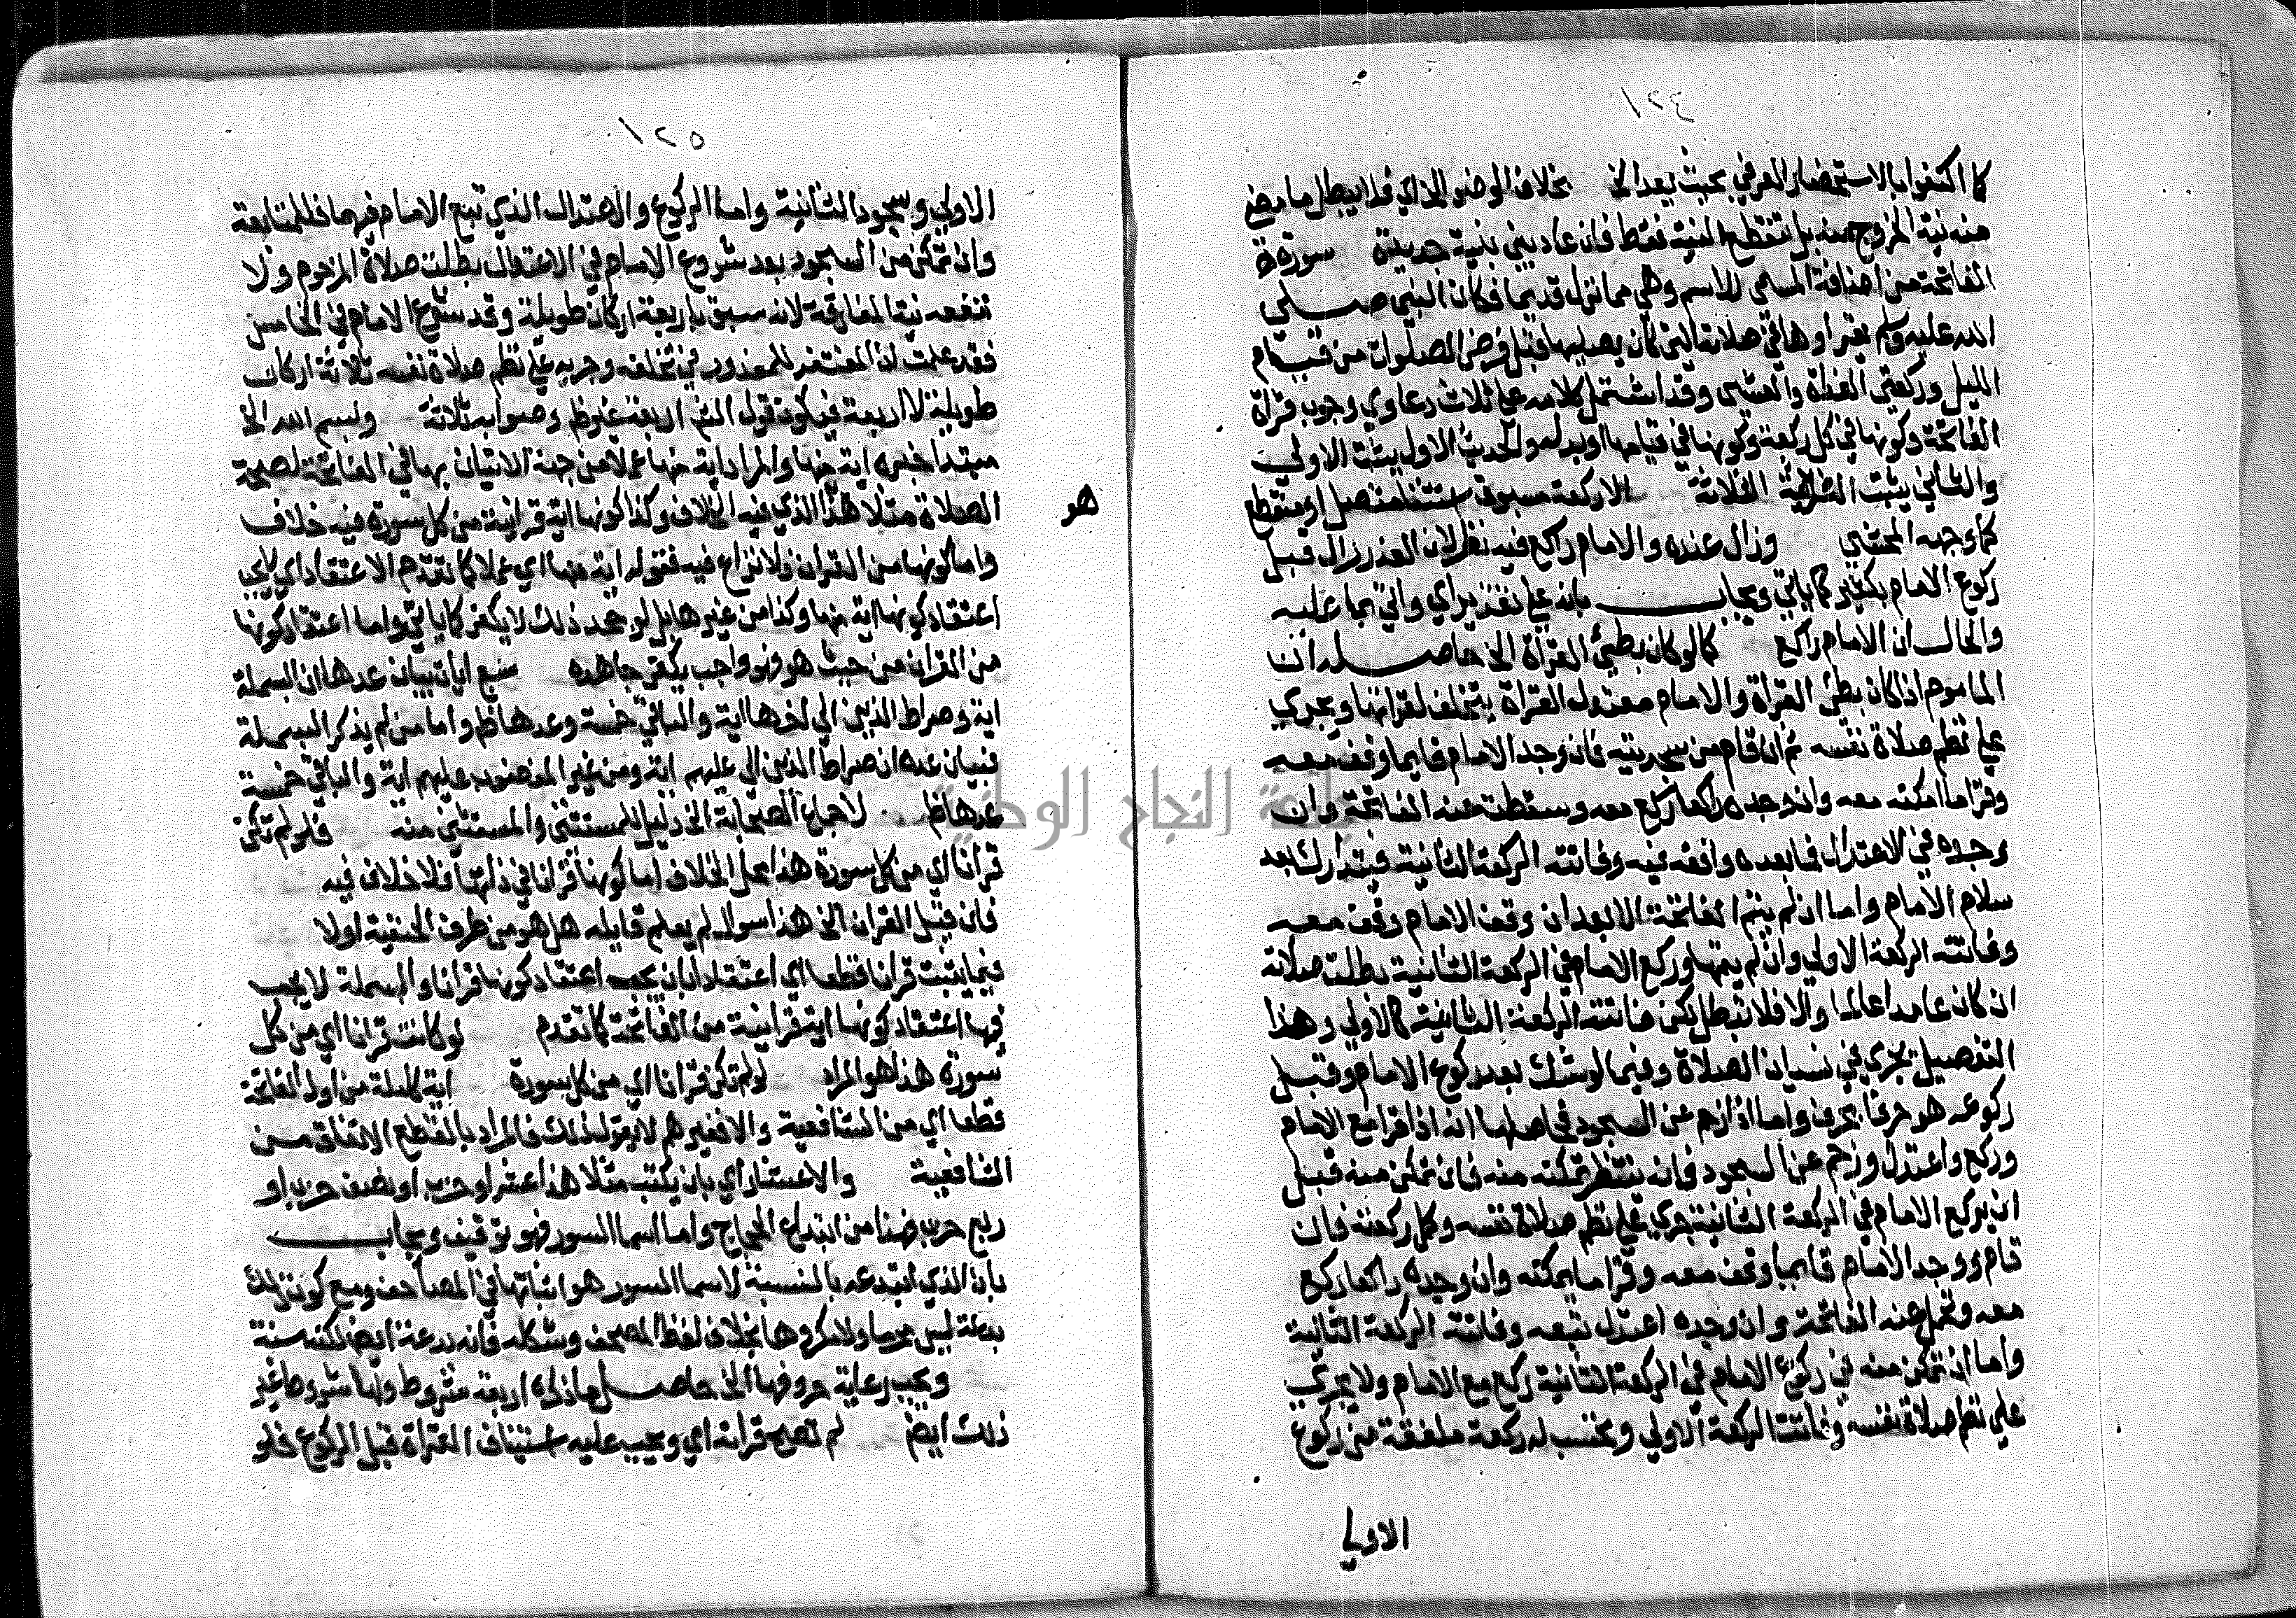 ١٢٤
كما اكتفوا بالاستحضار العرفي بحيث يعد الخ بخلاف الوضو الخ اي فلا يبطل ما مضى
منه نية الخروج منه بل تنقطع النية فقط فان عاد بنى بنية جديدة سورة
الفاتحة من اضافة المسمى للاسم وهي مما نزل قديما فكان النبي صلى
الله عليه وسلم يقراوها في صلاته التي كان يصليها قبل فرض الصلوات من قيام
الليل وركعتي الغداة والعشي وقد اشتمل كلامه على ثلاث دعاوي وجوب قراة
الفاتحة وكونها في كل ركعة وكونها في قيامها او بدله والحديث الاول يثبت الاولى
والثاني يثبت الثلاثة الا ركعة مسبوق استثنا متصل او منقطع
كما وجهه المحشي وزال عذره والامام راكع فيه نظر لان العذر زال قبل
ركوع الامام بكثير كما ياتي ويجاب بانه على تقدير اي واتى بما عليه
والحال ان الامام راكع كما لو كان بطيئ القراة الخ حاصله ان
الماموم اذا كان بطئ القراة والامام معتدل القراة يتخلف لقراتها ويجري
على نظم صلاة نفسه ثم ان قام من سجدتيه فان وجد الامام قايما وقف معه
وقرا ما امكنه معه وان وجده راكعا ركع معه وسقطت عنه الفاتحة وان
وجده في الاعتدال فما بعده وافقه فيه وفاتته الركعة الثانية فيتدارك بعد
سلام الامام واما ان لم يتم الفاتحة الا بعد ان وقف الامام وقف معه
وفاتته الركعة الاولى وان لم يتمها وركع الامام في الركعة الثانية بطلت صلاته
ان كان عامدا عالما والا فلا تبطل لكن فاتته الركعة الثانية كالاولى وهذا
التفصيل يجري في نسيان الصلاة وفيما لو شك بعد ركوع الامام وقبل
ركوعه هو حرفا بحرف واما اذا زحم عن السجود فحاصلها انه اذا قرا مع الامام
وركع واعتدل وزحم عن السجود فانه ينتظر تمكنه منه فان تمكن منه قبل
ان يركع الامام في الركعة الثانية جرى على نظم صلاة نفسه وكمل ركعته فان
قام ووجد الامام قايما وقف معه وقرا ما يمكنه وان وجده راكعا ركع
معه وتحمل عنه الفاتحة وان وجده اعتدل تبعه وفاتته الركعة الثانية
واما ان تمكن منه في ركوع الامام في الركعة الثانية ركع مع الامام ولا يجري
على نظم صلاة نفسه وفاتت الركعة الاولى وتحسب له ركعة ملفقة من ركوع
الاولى
١٢٥
الاولى وسجود الثانية واما الركوع والاعتدال الذي تبع الامام فيهما فللمتابعة
وان تمكن من السجود بعد شروع الامام في الاعتدال بطلت صلاة المزحوم ولا
تنفعه نية المفارقة لانه سبق باربعة اركان طويلة وقد شرع الامام في الخامس
فقد علمت ان المغتفر للمعذور في تخلفه وجريه على نظم صلاة نفسه ثلاثة اركان
طويلة لا اربعة فيكون قول الشرح اربعة غير ظ وصوابه ثلاثة وبسم الله الخ
مبتدا خبره اية منها والمراد اية منها عملا من جهة الاتيان بها في الفاتحة لصحة
الصلاة مثلا هذا الذي فيه الخلاف وكذا كونها اية قرانية من كل سورة فيه خلاف
هو
واما كونها من القران فلا نزاع فيه فقوله اية منها اي عملا كما تقدم لا اعتقادا اي لا يجب
اعتقاد كونها اية منها وكذا من غيرها بل لو جحد ذلك لا يكفر كما ياتي واما اعتقاد كونها
من القران من حيث هو فهو واجب يكفر جاحده سبع ايات بيان عدها ان البسملة
اية وصراط الذين الى اخرها اية والباقي خمسة وعدها ظ واما من لم يذكر البسملة
فبيان عده ان صراط الذين الى عليهم اية ومن غير المغضوب عليهم اية والباقي خمسة
عدها ظ لاجماع الصحابة الخ دليل للمستثنى والمستثنى منه فلو لم تكن
قرانا اي من كل سورة هذا محل الخلاف اما كونها قرانا في ذاتها فلا خلاف فيه
فان قيل القران الخ هذا سوال لم يعلم قايله هل هو من طرف الحنفية اولا
فيما يثبت قرانا قطعا اي اعتقادا بان يجب اعتقاد كونها قرانا والبسملة لا يجب
فيها اعتقاد كونها اية قرانية من الفاتحة كما تقدم لو كانت قرانا اي من كل
سورة هذا هو المراد لو لم تكن قرانا اي من كل سورة اية كاملة من اول الفاتحة
قطعا اي من الشافعية والا فغيرهم لا يقول بذلك فالمراد بالقطع الاتفاق من
الشافعية والاعشار اي بان يكتب مثلا هذا عشر او حزب او نصف حزب او
ربع حزب فهذا من ابتداع الحجاج واما اسما السور فهو توقيف ويجاب
بان الذي ابتدعه بالنسبة لاسما السور هو اثباتها في المصاحف ومع كون ذلك
بدعة ليس محرما ولا مكروها بخلاف نقط المصحف وشكله فانه بدعة ايضا لكنه سنة
ويجب رعاية حروفها الخ حاصل ما ذكره اربعة شروط ولها شروط غير
ذلك ايض لم تصح قراته اي ويجب عليه استيناف القراة قبل الركوع فلو
جامعة النجاح الوطنية